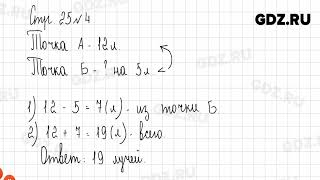 GDZ.RU
Стр. 25 № 4
Точка А - 12л.
Точка Б - ? на 5л
1) 12 - 5 = 7 (л) - из точки Б
2) 12 + 7 = 19 (л) - всего
Ответ: 19 лучей.
GDZ.RU